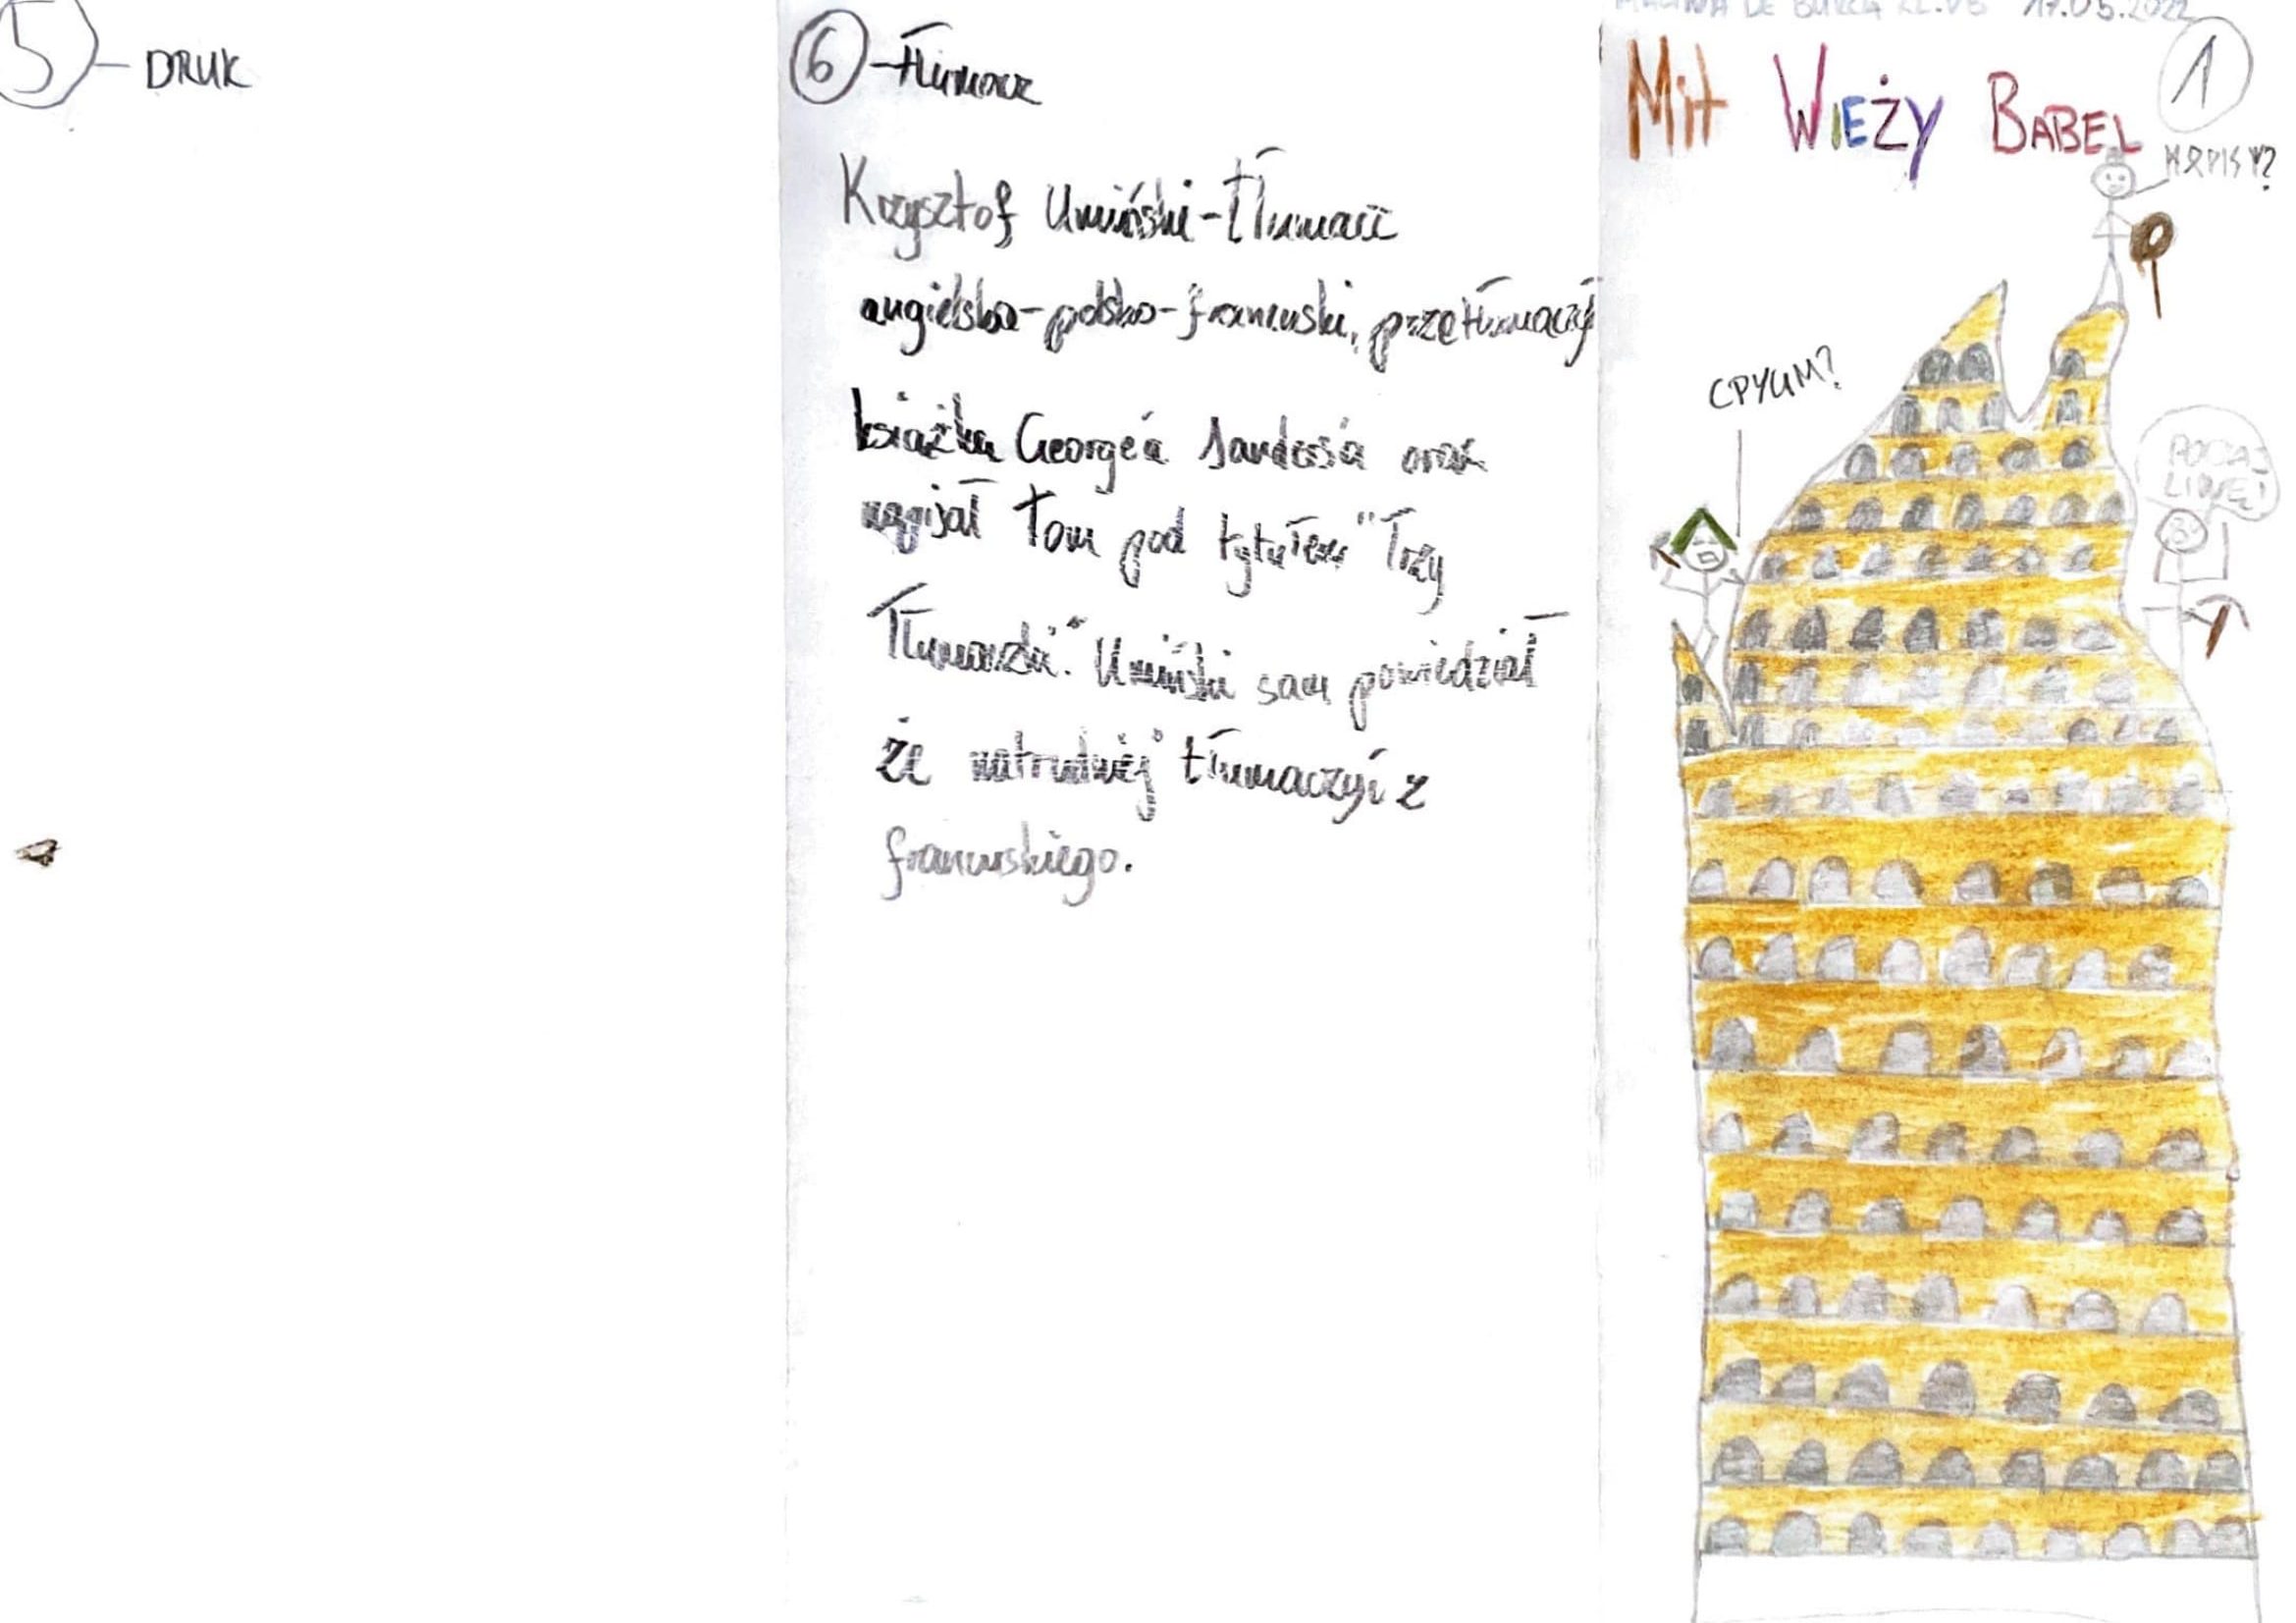 5 - DRUK
6 - tłumacz
Krzysztof Umiński - tłumacz
angielsko-polsko-francuski, przetłumaczył
książka George'a Sanders'a oraz
napisał tom pod tytułem "Trzy
Tłumaczki." Umiński sam powiedział
że natrudniej tłumaczyć z
francuskiego.
MALINA DE BURCA KL.VB 17.05.2022
1
Mit WIEŻY BABEL
CPYUM?